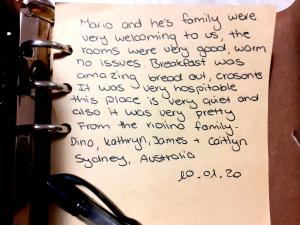 Mario and he's family were
very welcoming to us, the
rooms were very good, warm
no issues. Breakfast was
amazing bread out, crosonts
It was very hospitable
this place is very quiet and
also it was very pretty
From the family.
Dino, Kathryn, James + Caitlyn
Sydney, Australia
10.01.20